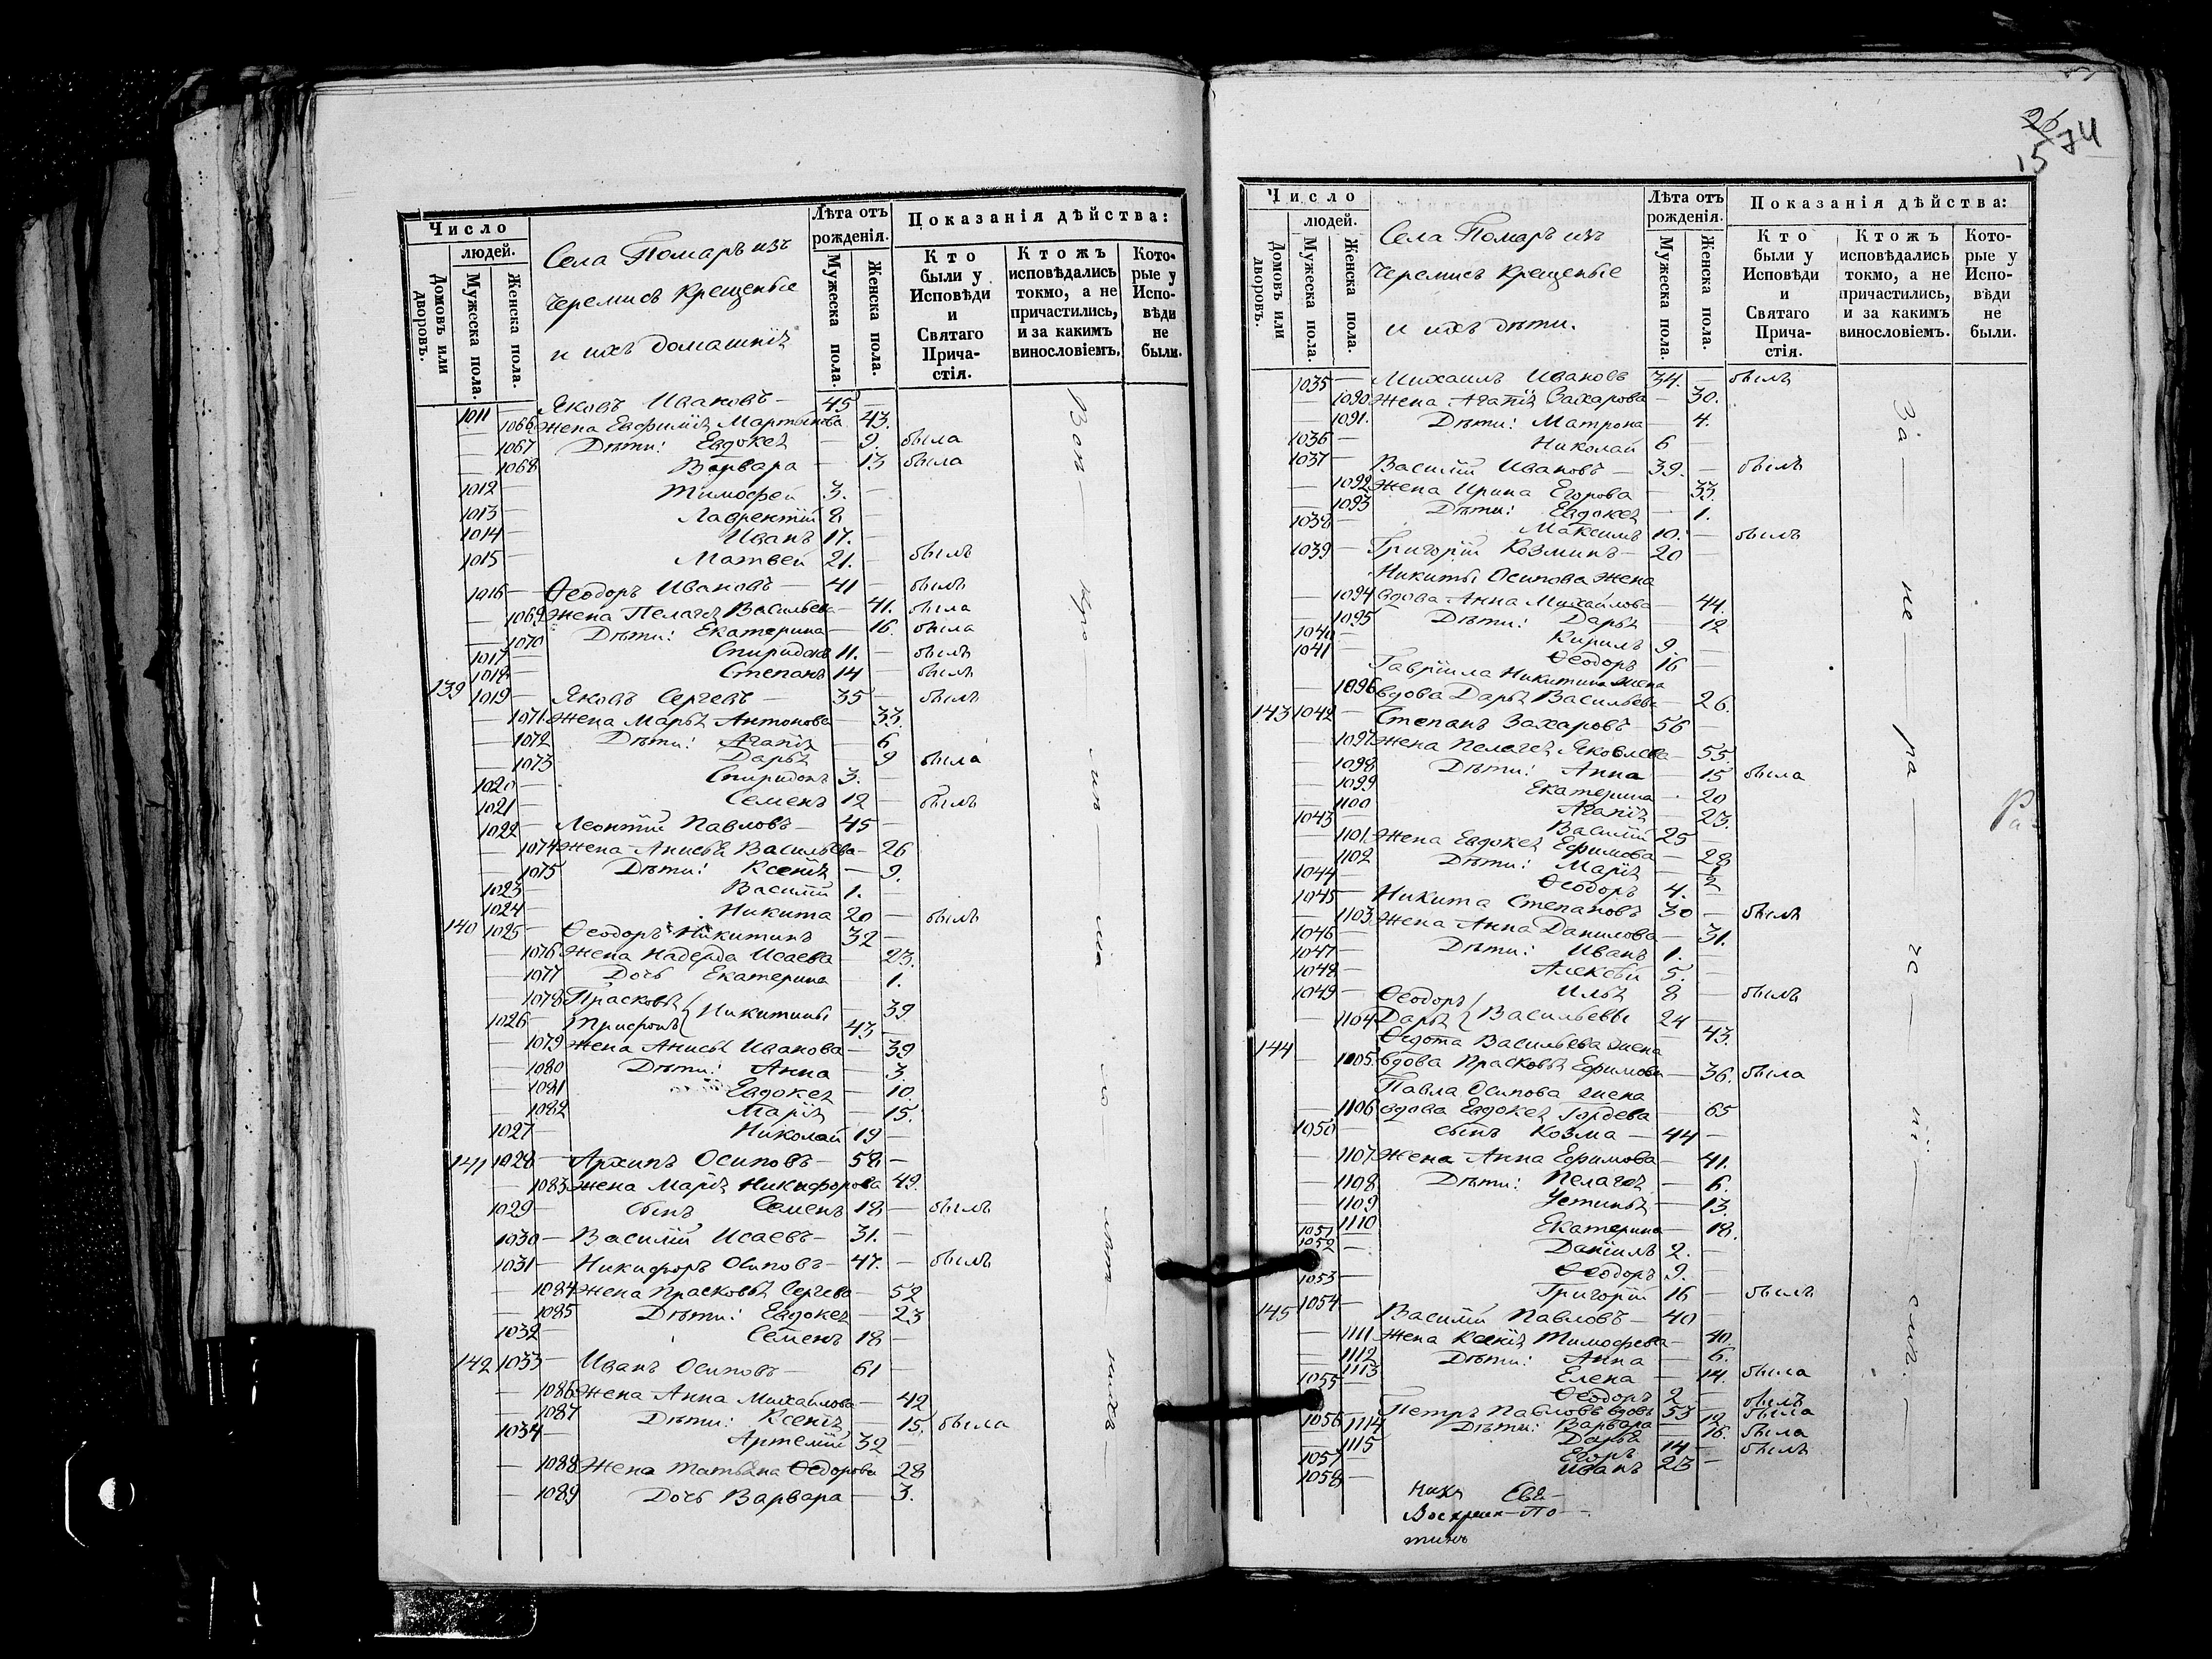 Число
людей.
Домовъ или дворовъ.
Мужеска пола.
Женска пола.
Села Помаръ изъ
Черемисъ крещеные
и ихъ домашнія
Лѣта отъ рожденія.
Мужеска пола.
Женска пола.
Показанія дѣйства:
Кто были у Исповѣди и Святаго Причастія.
Ктожъ исповѣдались токмо, а не причастились, и за какимъ винословіемъ.
Которые у Исповѣди не были.
1011 — Яковъ Ивановъ — 45 —
— 1066 Жена Евфимія Мартынова 43.
— 1067 Дѣти: Евдокея — 9. была
— 1068 Варвара — 13 была
1012 — Тимофей 3. —
1013 — Лаврентій 8 —
1014 — Иванъ 17. —
1015 — Матвей 21. — былъ
1016 — Ѳеодоръ Ивановъ — 41 — былъ
— 1069 Жена Пелагея Васильева — 41. была
— 1070 Дѣти: Екатерина — 16. была
1017 — Спиридонъ 11. — былъ
1018 — Степанъ 14 — былъ
139 1019 — Яковъ Сергеевъ — 35 — былъ
— 1071 Жена Марья Антонова — 33.
— 1072 Дѣти: Агапія — 6
— 1073 Дарья 9 была
1020 — Спиридонъ 3. —
1021 — Семенъ 12 — былъ
1022 — Леонтій Павловъ — 45 —
— 1074 Жена Анисья Васильева — 26
— 1075 Дѣти: Ксенія — 9.
1023 — Василій 1. —
1024 — Никита 20 — былъ
140 1025 — Ѳеодоръ Никитинъ 32 —
— 1076 Жена Надежда Исаева — 23.
— 1077 Дочь Екатерина — 1.
— 1078 Прасковья } Никитины — 39
1026 — Трифонъ } 43 —
— 1079 Жена Анисья Иванова — 39
— 1080 Дѣти: Анна — 3.
— 1081 Евдокея — 10.
— 1082 Марія — 15.
1027 — Николай 19 —
141 1028 — Архипъ Осиповъ — 58 —
— 1083 Жена Марія Никифорова 49.
1029 — сынъ Семенъ 18 — былъ
1030 — Василій Исаевъ — 31. —
1031 — Никифоръ Осиповъ — 47. — былъ
— 1084 Жена Прасковья Сергева — 52
— 1085 Дѣти: Евдокея — 23
1032 — Семенъ 18 —
142 1033 — Иванъ Осиповъ — 61 —
— 1086 Жена Анна Михайлова — 42
— 1087 Дѣти: Ксенія — 15. была
1034 — Артемій 32 —
— 1088 Жена Татьяна Ѳедорова 28
— 1089 Дочь Варвара — 3.
26
15 74
Число
людей.
Домовъ или дворовъ.
Мужеска пола.
Женска пола.
Села Помаръ изъ
Черемисъ крещеные
и ихъ дѣти.
Лѣта отъ рожденія.
Мужеска пола.
Женска пола.
Показанія дѣйства:
Кто были у Исповѣди и Святаго Причастія.
Ктожъ исповѣдались токмо, а не причастились, и за какимъ винословіемъ.
Которые у Исповѣди не были.
1035 — Михаилъ Ивановъ 34. — былъ
— 1090 Жена Агапія Сахарова — 30.
— 1091. Дѣти: Матрона — 4.
1036 — Николай 6
1037 — Василій Ивановъ — 39. — былъ
— 1092 Жена Ирина Егорова — 33.
— 1093 Дѣти: Евдокея — 1.
1038 — Максимъ 10. — былъ
1039 — Григорій Козминъ — 20 —
Никиты Осипова жена
— 1094 вдова Анна Михайлова — 44.
— 1095 Дѣти: Дарья — 12
1040 — Кирилъ 9 —
1041 — Ѳеодоръ 16 —
Гавріила Никитина жена
— 1096 вдова Дарья Васильева — 26.
143 1042 — Степанъ Захаровъ — 56 —
— 1097 Жена Пелагея Яковлева — 55.
— 1098 Дѣти: Анна — 15 была
— 1099 Екатерина — 20
— 1100 Агапія — 23.
1043 — Василій 25 —
— 1101 Жена Евдокея Ефимова — 28
— 1102 Дѣти: Марія — 2
1044 — Ѳеодоръ 4. —
1045 — Никита Степановъ 30 — былъ
— 1103 Жена Анна Данилова — 31.
1046 — Дѣти: Иванъ 1. —
1047 — Алексѣй 5. —
1048 — Илья 8 — былъ
1049 — Ѳеодоръ } Васильевы 24 —
— 1104 Дарья } — 43.
Ѳедота Васильева жена
144 — 1105 вдова Прасковья Ефимова — 36. была
Павла Осипова жена
— 1106 вдова Евдокея Гордева — 65
1050 — сынъ Козма — 44 —
— 1107 Жена Анна Ефимова — 41.
— 1108 Дѣти: Пелагея — 6.
— 1109 Устинья — 13.
— 1110 Екатерина — 18.
1051 — Даніилъ 2. —
1052 — Ѳеодоръ 9. —
1053 — Григорій 16 — былъ
145 1054 — Василій Павловъ — 40 —
— 1111 Жена Ксенія Тимофева — 40.
— 1112 Дѣти: Анна — 6.
— 1113 Елена — 14. была
1055 — Ѳеодоръ 2 —
1056 — Петръ Павловъ вдовъ 53 — былъ
— 1114 Дѣти: Варвара — 12 была
— 1115 Дарья — 16. была
1057 — Егоръ 14 — былъ
1058 — Иванъ 23 —